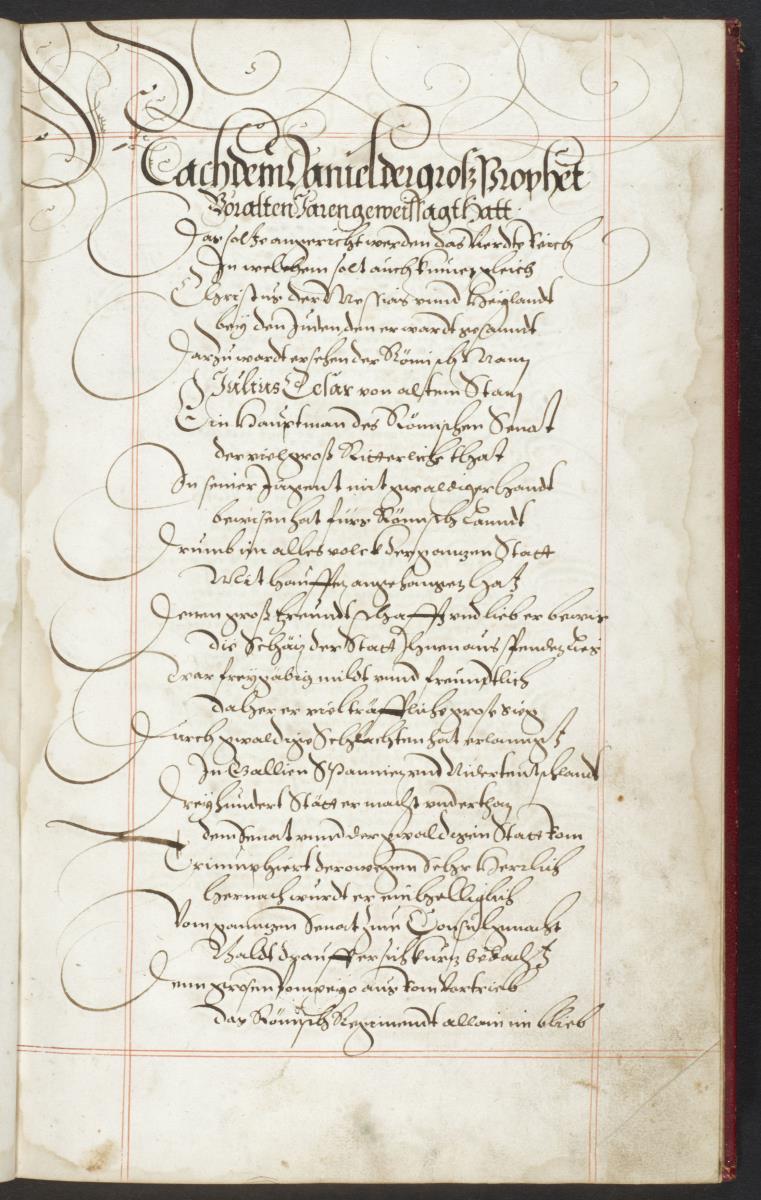 Nachdem Daniel der groß Prophet
Vor alten Jaren geweissagt hatt
Das solt angericht werden das vierdte Reich
In welchem solt auch kumen gleich
Christus der Messias vnnd Heylandt
bey den Juden den er wardt gesanndt
Darzu wardt ersehen der Römisch Mann
Julius Cesar von altem Stam
Ein Hauptman des Römischen Senat
der viel groß Ritterliche that
In seiner Jugent mit gwaldiger handt
bewisen hat fürs Römisch Lanndt
Drumb im alles volck der ganzen Statt
Mit hauffen angehangen hat
Denen groß freundtschafft vnd lieb er bewis
die Schätz der Statt Ihnen aus spenden lies
war freygäbig mildt vnnd freundtlich
daher er viel träffliche große sieg
Durch gwaldige Schlachten hat erlanngt
In Gallien Spannien vnd Niderteutschlandt
Dreyhundert Stätt er macht vnderthan
dem Senat vnnd der gwaldigen Statt Rom
Triumphiert derowegen Sehr Herrlich
hernach wurdt er einhelliglich
Vom ganntzen Senat zum Consul gmacht
Baldt drauff er sich kurtz bedacht
Denn grosen Pompejo aus Rom vertrieb
das Römisch Regimendt allain im blieb